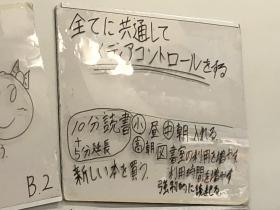 全てに共通して
メディアコントロールをする
10分読書 小 昼 中 朝 入れる
+5分延長 高 朝 図書室の利用を増やす
新しい本を買う 利用時間を増やす
強制的に
B.2